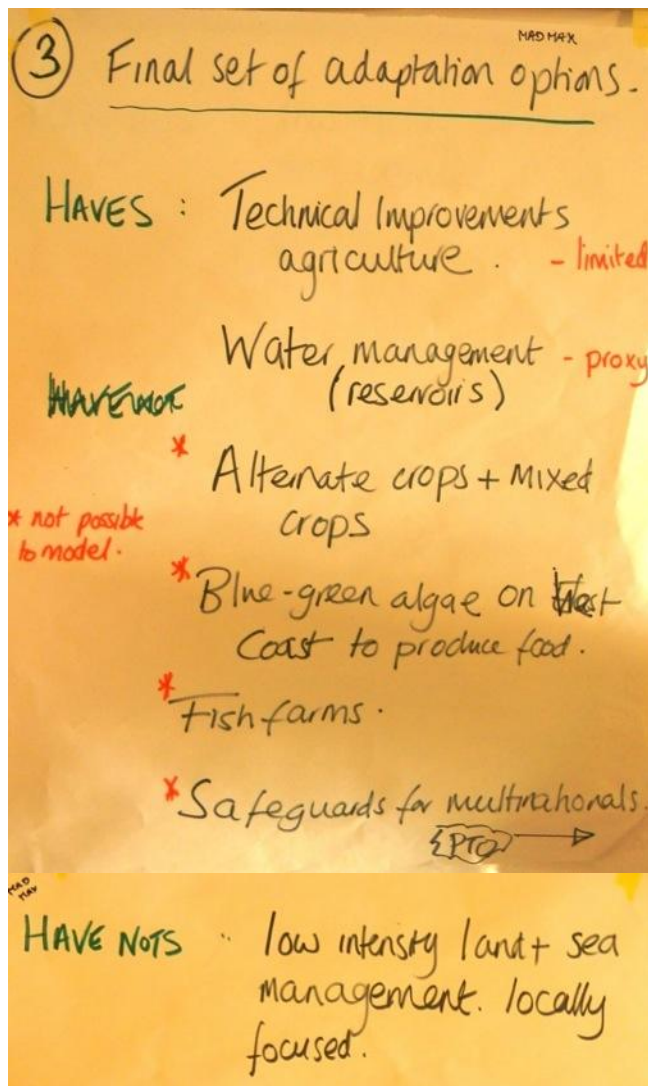 MAD MAX
3 Final set of adaptation options.
HAVES : Technical Improvements
agriculture. - limited
Water management - proxy
(reservoirs)
* Alternate crops + Mixed
crops
* not possible
to model.
* Blue-green algae on West
Coast to produce food.
* Fish farms.
* Safeguards for multinationals.
PTO
MAD
MAX
HAVE NOTS : low intensity land + sea
management. locally
focused.